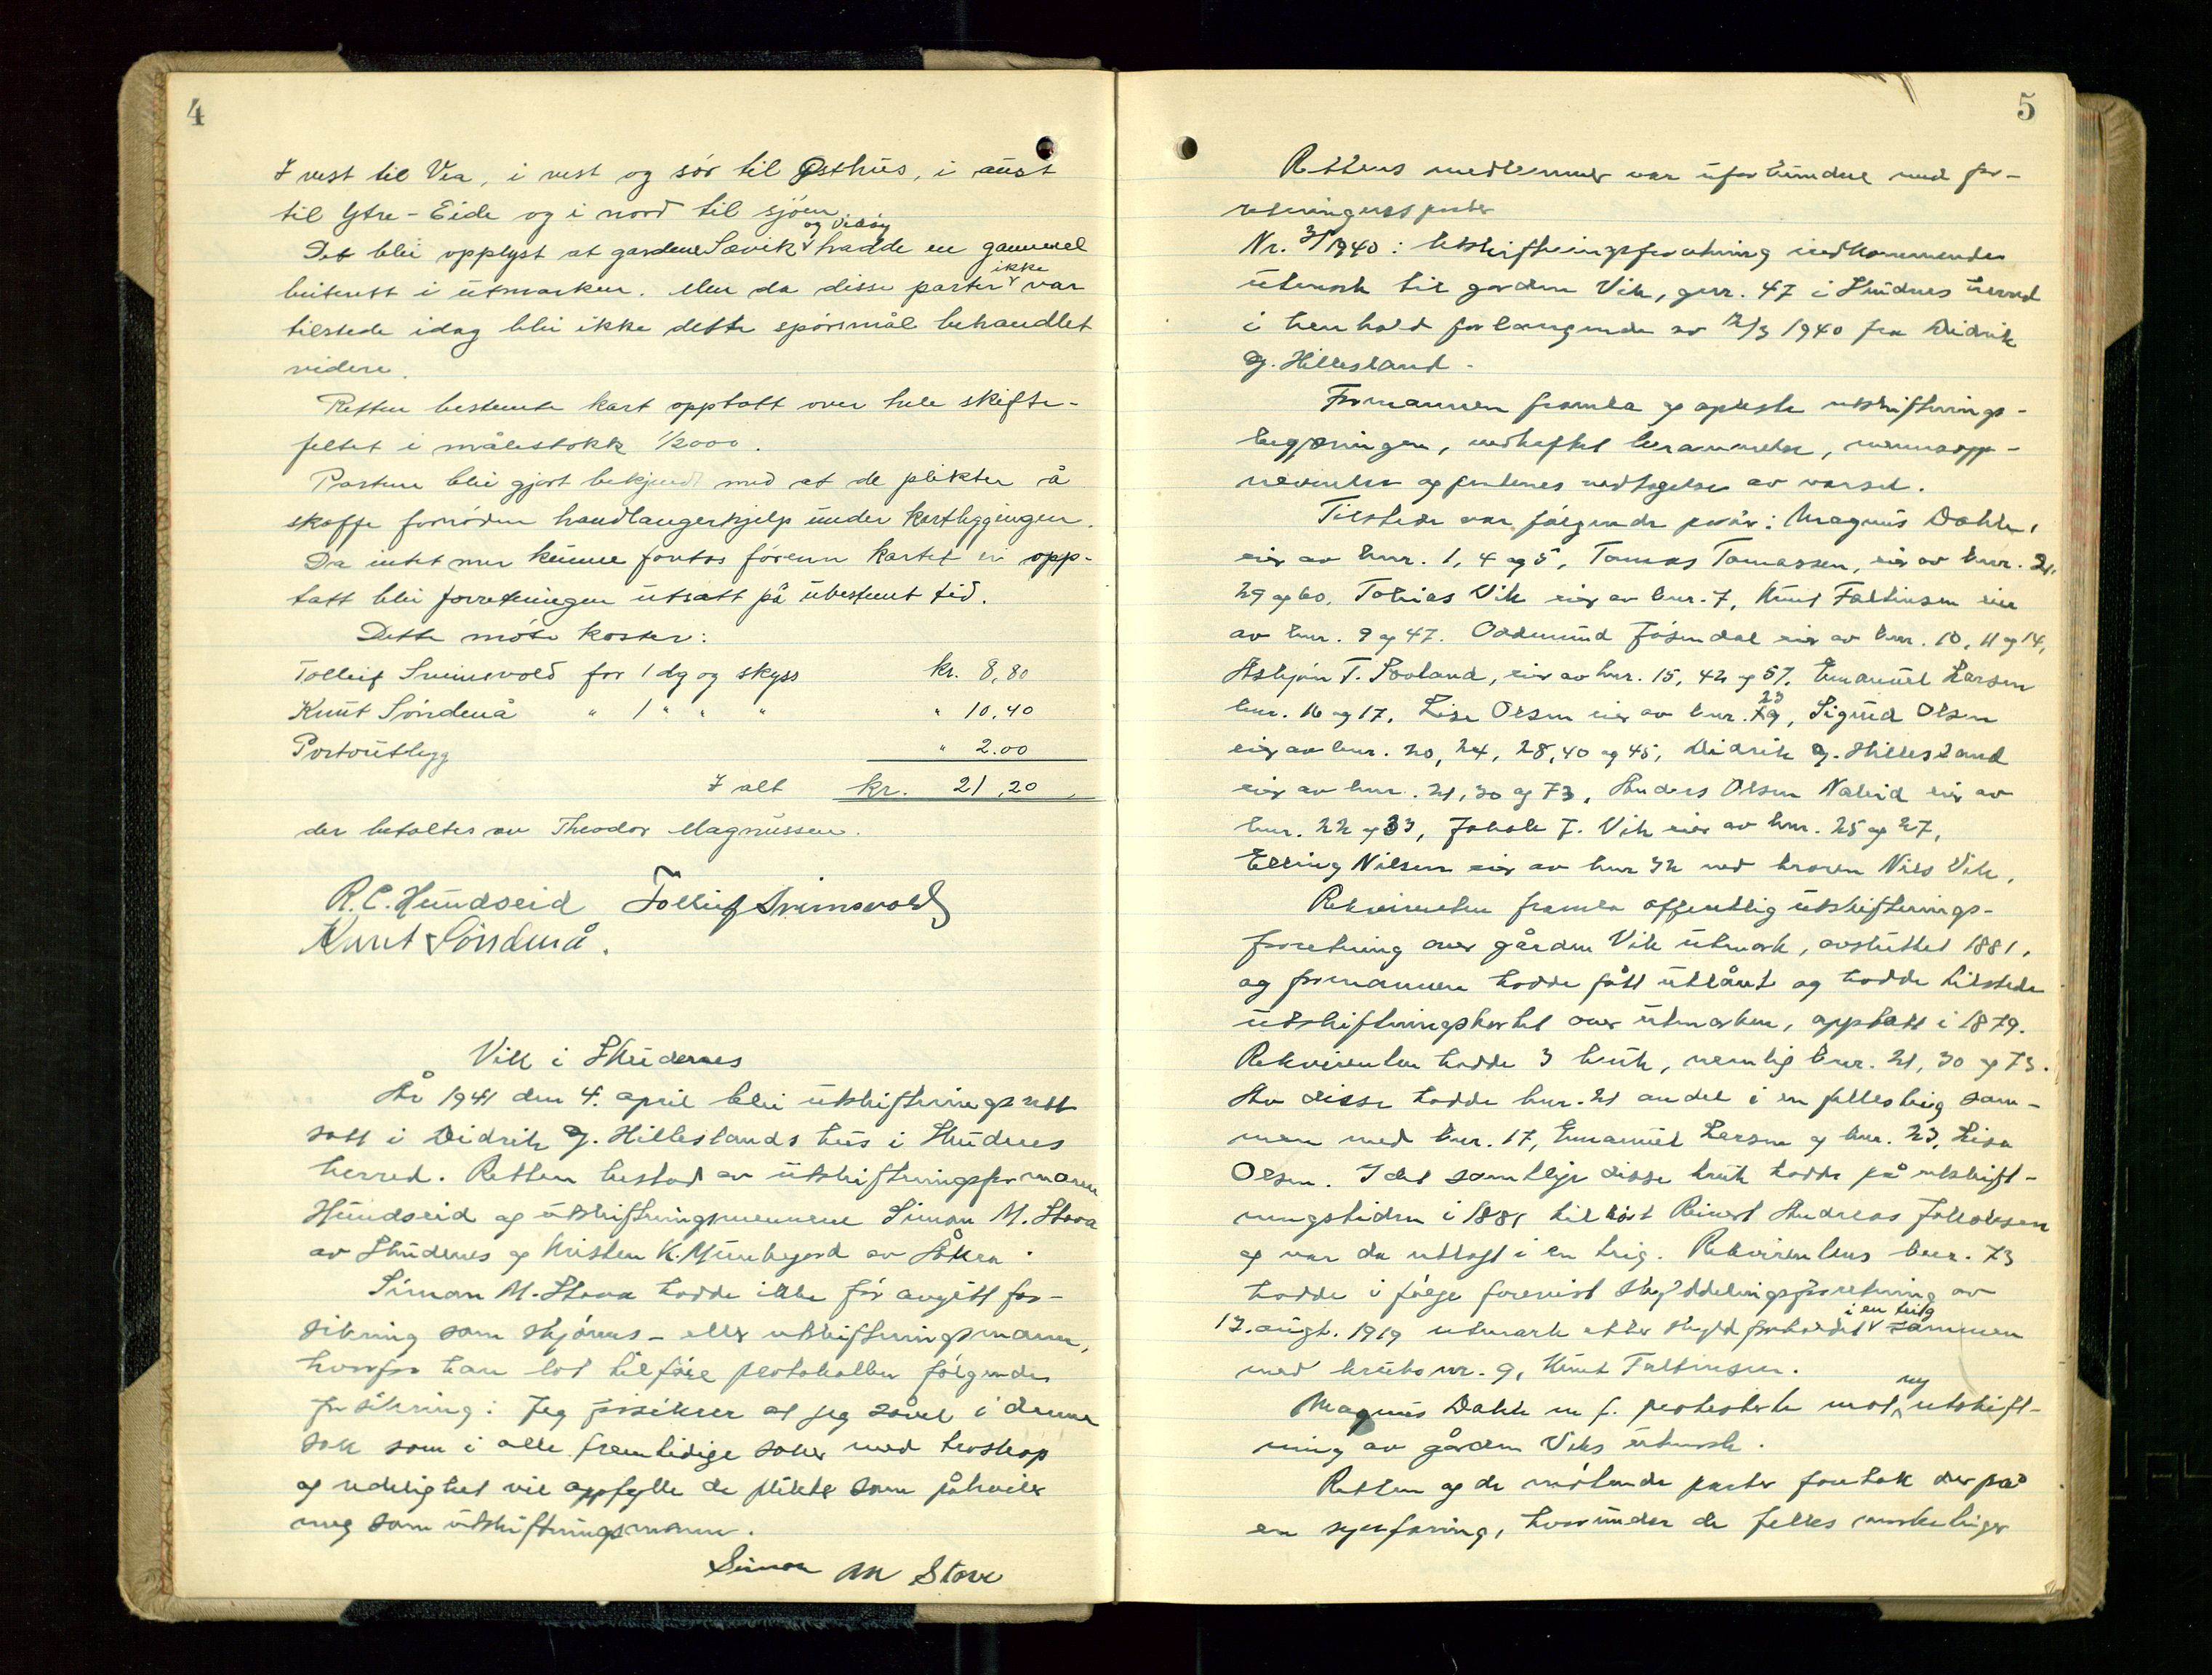 4
I vest til Vea, i vest og sör til Østhus, i aust
til Ytre-Eide og i nord til sjöen.
og Visöy
Det blei opplyst at gardene Sævik hadde en gammel
ikke
beiterett i utmarken. Men da disse parter var
tilstede idag blei ikke dette spörsmål behandlet
videre.
Retten bestemte kart opptatt over hele skifte-
feltet i målestokk 1/2000.
Partene blei gjort bekjend med at de plikter å
skaffe fornöden handlangerhjelp under kartleggingen.
Da intet mer kunne foretas förenn kartet er opp-
tatt blei forretningen utsatt på ubestemt tid.
Dette möte koster:
Tolleif Sveinsvold for 1 dg og skyss kr. 8,80
Knut Söndenå " 1 " " " " 10,40
Portoutlegg " 2.00
I alt kr. 21,20
der betaltes av Theodor Magnussen.
R. C. Hundseid Tolleif Sveinsvold
Knut Söndenå.
Vik i Skudenes
År 1941 den 4. april blei utskiftningsrett
satt i Didrik G. Hilleslands hus i Skudenes
herred. Retten bestod av utskiftningsformann
Hundseid og utskiftningsmennene Simon M. Stava
av Skudenes og Kristen K. Munkejord av Åkra.
Simon M. Stava hadde ikke för avgitt for-
sikring som skjönns- eller utskiftningsmann,
hvorfor han lot tilföre protokollen fölgende
forsikring: Jeg forsikrer at jeg såvel i denne
sak som i alle fremtidige saker med troskap
og redelighet vil oppfylle de plikter som påhviler
meg som utskiftningsmann.
Simon M Stava
5
Rettens medlemmer var uforbundne med for-
retningens parter
Nr. 3/1940: Utskiftningsforretning vedkommende
utmark til garden Vik, gnr. 47 i Skudnes herred
i henhold forlangende av 12/3 1940 fra Didrik
G. Hillesland.
Formannen framla og opleste utskiftnings-
begjæringen, vedheftet berammelse, mennsopp-
nevnelse og partenes vedtagelse av varsel.
Tilstede var fölgende partær: Magnus Dahle,
eier av bnr. 1, 4 og 5, Tomas Tomassen, eier av bnr. 2,
29 og 60, Tobias Vik eier av bnr. 7, Knut Faltinsen eier
av bnr. 9 og 47. Oddmund Jösendal eier av bnr. 10, 11 og 14,
Asbjörn T. Sovland, eier av bnr. 15, 42 og 57, Emanuel Larsen
23
bnr. 16 og 17, Lisa Olsen eier av bnr. 79, Sigurd Olsen
eier av bnr. 20, 24, 28, 40 og 45, Didrik G. Hillesland
eier av bnr. 21, 30 og 73, Anders Olsen Naleid eier av
bnr. 22 og 33, Jakob J. Vik eier av bnr. 25 og 27,
Elling Nilsen eier av bnr 32 ved broren Nils Vik.
Rekvirenten framla offentlig utskiftnings-
forretning over gården Vik utmark, avsluttet 1881,
og formannen hadde fått utlånt og hadde tilstede
utskiftningskartet over utmarken, opptatt i 1879.
Rekvirenten hadde 3 bruk, nemlig bnr. 21, 30 og 73.
Av disse hadde bnr. 21 andel i en fellesteig sam-
men med bnr. 17, Emanuel Larsen og bnr. 23, Lisa
Olsen. Idet samtlige disse bruk hadde på utskift-
ningstiden i 1881 tilhört Reinert Andreas Jakobsen
og var da utlagt i en teig. Rekvirentens bnr. 73
hadde i fölge forevist skylddelingsforretning av
i en teig
12. augt. 1919 utmark etter skyldforholdet sammen
med bruks nr. 9, Knut Faltinsen.
ny
Magnus Dahle m fl. protesterte mot utskift-
ning av gården Viks utmark.
Retten og de mötende parter foretok derpå
en synfaring, hvorunder de felles markateiger